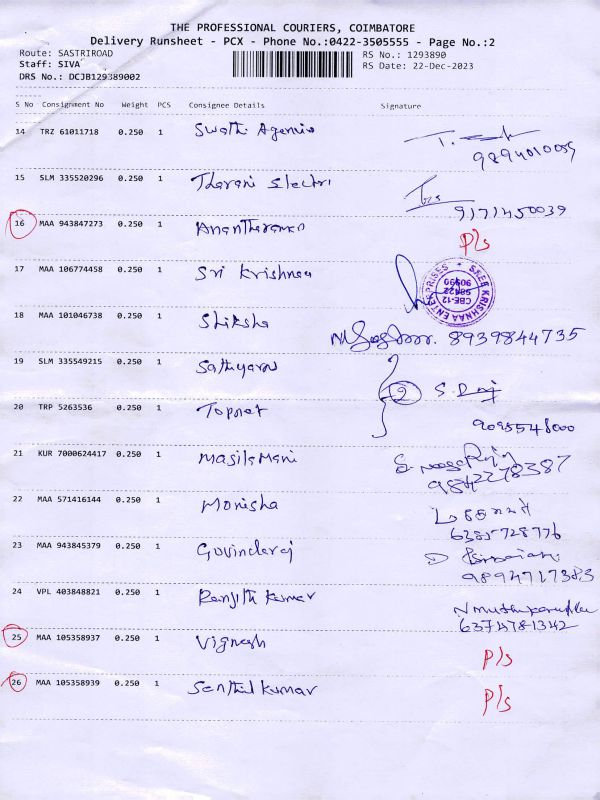 THE PROFESSIONAL COURIERS, COIMBATORE
Delivery Runsheet - PCX - Phone No.:0422-3505555 - Page No.:2
Route: SASTRIROAD
Staff: SIVA
DRS No.: DCJB129389002
RS No.: 1293890
RS Date: 22-Dec-2023
S No Consignment No Weight PCS Consignee Details Signature
14 TRZ 61011718 0.250 1 Swathi Agencies
9894010059
15 SLM 335520296 0.250 1 Tharani Electri
9171450039
16 MAA 943847273 0.250 1 Anantharaman P/s
17 MAA 106774458 0.250 1 Sri Krishnaa
SREE KRISHNAA ENTERPRISES
CBE-12
18 MAA 101046738 0.250 1 Shiksha 8939844735
19 SLM 335549215 0.250 1 Sathyaraj
2
20 TRP 5263536 0.250 1 Topnet
9095548000
21 KUR 7000624417 0.250 1 Masilamani
9842278387
22 MAA 571416144 0.250 1 Monisha
6385728776
23 MAA 943845379 0.250 1 Govindaraj
9894717383
24 VPL 403848821 0.250 1 Ranjith Kumar
6374781342
25 MAA 105358937 0.250 1 Vignesh P/s
26 MAA 105358939 0.250 1 Senthil Kumar P/s